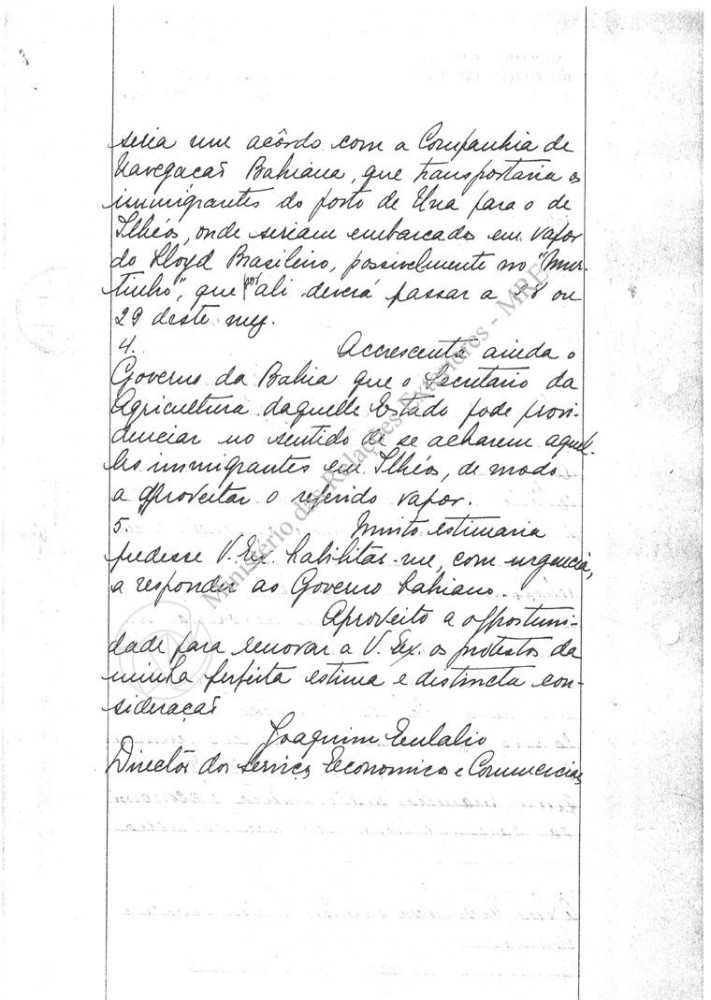 seria um acôrdo com a Companhia de
Navegação Bahiana, que transportaria os
immigrantes do porto de Una para o de
Ilhéos, onde seriam embarcados em vapor
do Lloyd Brasileiro, possivelmente no "Mur-
tinho", que por ali deverá passar a 28 ou
29 deste mez.
4. Accrescenta ainda o
Governo da Bahia que o Secretario da
Agricultura daquelle Estado pode provi-
denciar no sentido de se acharem aquel-
les immigrantes em Ilhéos, de modo
a aproveitar o referido vapor.
5. Muito estimaria
pudesse V. Ex. habilitar-me, com urgencia,
a responder ao Governo bahiano.
Aproveito a opportuni-
dade para renovar a V. Ex. os protestos da
minha perfeita estima e distincta con-
sideração
Joaquim Eulalio
Director dos Serviços Economicos e Commerciaes
Ministério das Relações Exteriores - MRE